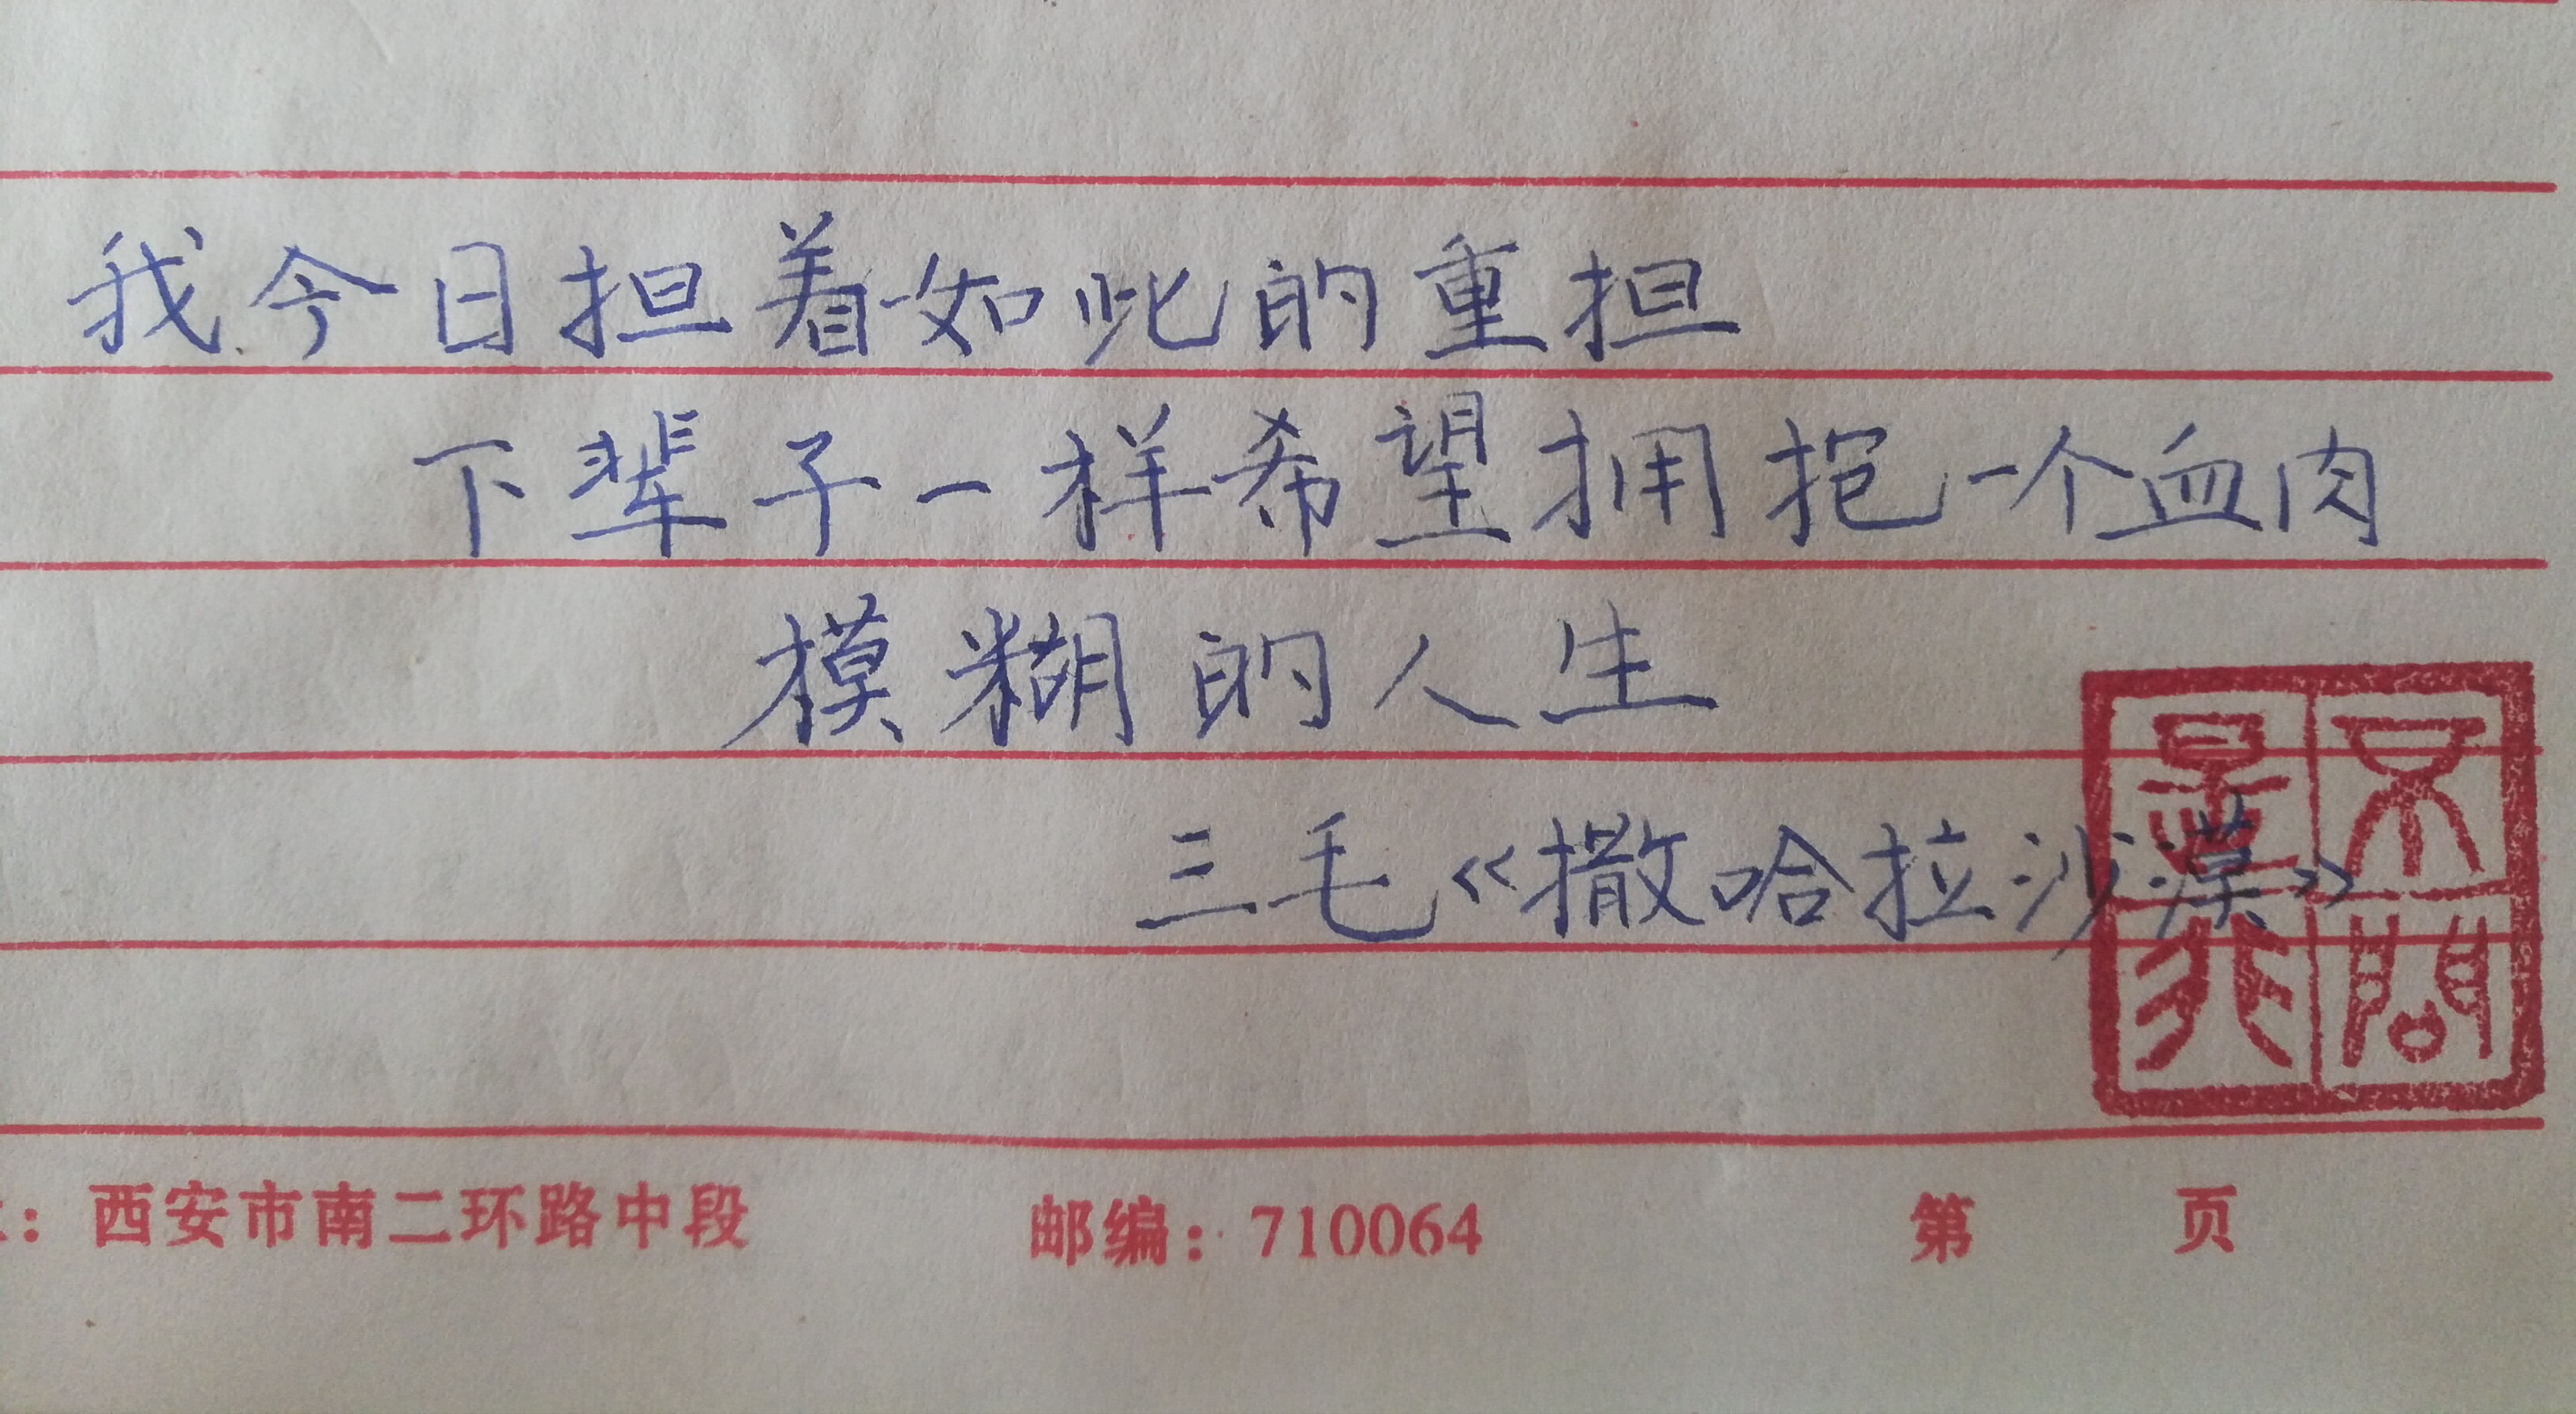 我今日担着如此的重担
下辈子一样希望拥抱一个血肉
模糊的人生
三毛《撒哈拉沙漠》
不问
：西安市南二环路中段 邮编：710064 第 页